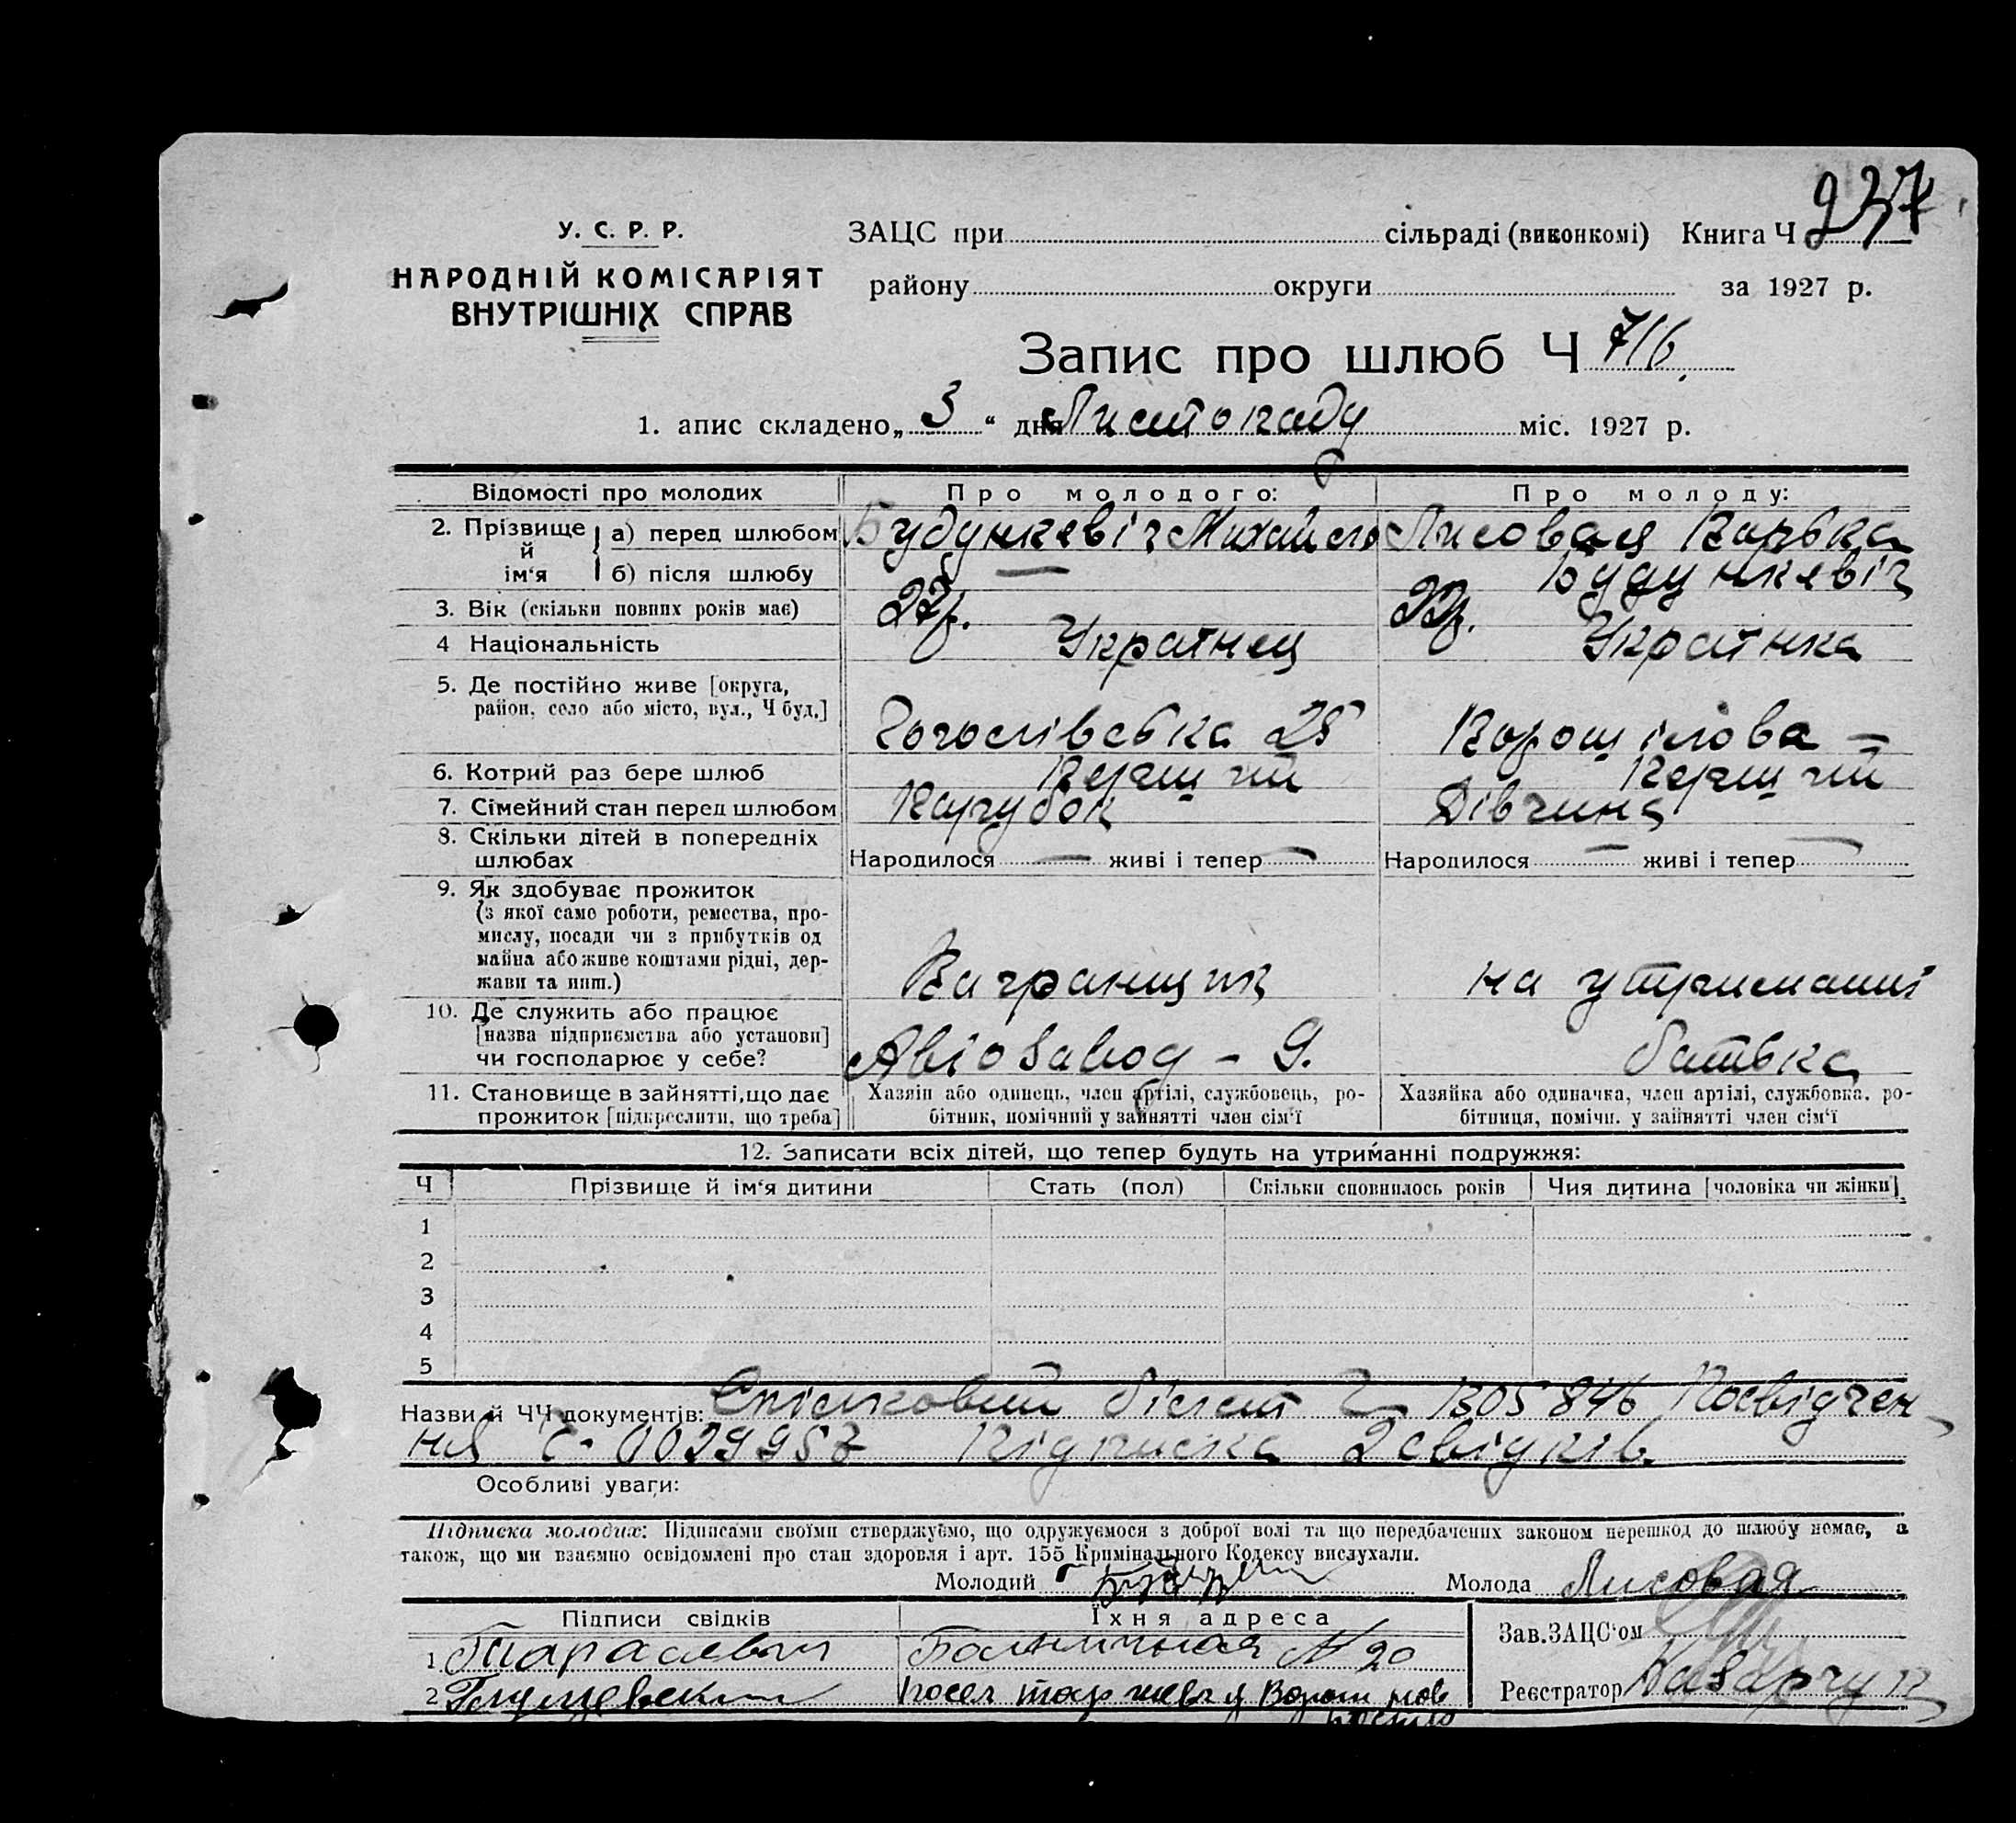 237
У. С. Р. Р.
НАРОДНІЙ КОМІСАРІЯТ
ВНУТРІШНІХ СПРАВ
ЗАЦС при сільраді (виконкомі) Книга Ч
району округи за 1927 р.
Запис про шлюб Ч 716.
1. апис складено „ 3 “ дня Листопаду міс. 1927 р.
Відомості про молодих Про молодого: Про молоду:
2. Прізвище й ім‘я а) перед шлюбом Будункевіч Михайло Лисовая
б) після шлюбу — Будункевіч
3. Вік (скільки повних років має) 27р. 22р.
4 Національність Украінец Украінка
5. Де постійно живе [округа,
район, село або місто, вул., Ч буд.] 25 Ворошілова —
6. Котрий раз бере шлюб Перший Перший
7. Сімейний стан перед шлюбом Парубок Дівчина
8. Скільки дітей в попередніх
шлюбах Народилося — живі і тепер — Народилося — живі і тепер —
9. Як здобуває прожиток
(з якої само роботи, ремества, про-
мислу, посади чи з прибутків од
майна або живе коштами рідні, дер-
жави та инш.) Вагранщик на утриманні
10. Де служить або працює
[назва підприємства або установи]
чи господарює у себе? Авіозавод - 9. батька
11. Становище в зайнятті, що дає
прожиток [підкреслити, що треба]
Хазяїн або одинець, член артілі, службовець, ро-
бітник, помічний у зайнятті член сім‘ї
Хазяйка або одиначка, член артілі, службовка, ро-
бітниця, помічн. у зайнятті член сім‘ї
12. Записати всіх дітей, що тепер будуть на утриманні подружжя:
Ч Прізвище й ім‘я дитини Стать (пол) Скільки сповнилось років Чия дитина [чоловіка чи жінки]
1
2
3
4
5
Назви й ЧЧ документів: білет Ч 1305846 Посвідчен
ня Ч- 0029957 Підписка 2 свідків
Особливі уваги:
Підписка молодих: Підписами своїми стверджуємо, що одружуємося з доброї волі та що передбачених законом перешкод до шлюбу немає, а
також, що ми взаємно освідомлені про стан здоровля і арт. 155 Кримінального Кодексу вислухали.
Молодий Молода Лисовая
Підписи свідків Їхня адреса
Зав.ЗАЦС‘ом
1 Тарасевич Больничная № 20
Реєстратор
2